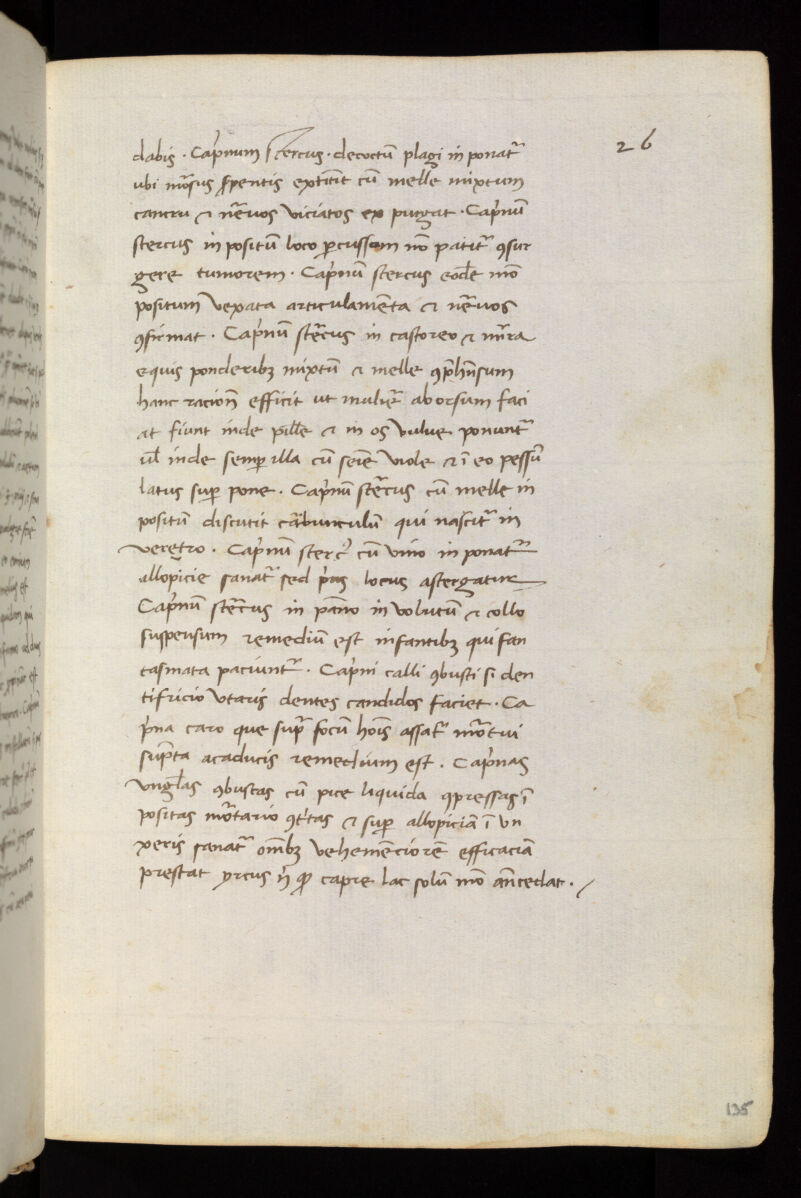 26
dabis . Cap̃num stercus . decoctũ plagi in ponat᷑
ubi mõsus s̃pentis extitit cũ melle mixtum
cancru & nẽuos viciatos ex purgat . Cap̃nũ
stercus in positũ loco ꝑcussum nõ patit᷑ ꝯsur
gere tumorem . Cap̃nũ stercus eodẽ mõ
positum vexata articulamẽta & nẽuos
ꝯfirmat . Cap̃nũ stẽcus in castoreo & mĩra
equis ponderibꝫ mixtũ & melle ꝯp̃hẽnsum
hanc racionẽ efficit ut mulieȓ aborsum faci
at fiunt inde pille & in os vulue ponunt᷑
ul̃ inde semꝑ illa cũ seiẽ viole & ĩ eo pessũ
latus suꝑ pone . Cap̃nũ stẽcus cũ melle in
positũ discutit cãbunculũ qui nascit᷑ in
veretro . Cap̃nũ sterc᷒ cũ vino in ponat᷑
allopicie sanat᷑ sed p̃us locus astergatur
Cap̃nũ stẽcus in pãno in volutũ & collo
suspensum remediũ est infantibꝫ qui fan
tasmata paciunt᷑ . Cap̃ni calli ꝯbusti si den
tifricio vtaris dentes candidos faciet . Ca
p̃na caro que sup̃ focũ hoĩs assat᷑ mõtui
sũpta acaducis remedium est . Cap̃nas
vngl̃as ꝯbustas cũ pice liquida ꝯpressas ĩ
positas mõtario ꝯt̃tas & suꝑ allopiciã ĩ vn
xeris sanat᷑ om̃ibꝫ vehemẽciorẽ efficaciã
prestat yrcus ñ ꝙ capre lac solũ mõ ãncedat .
135